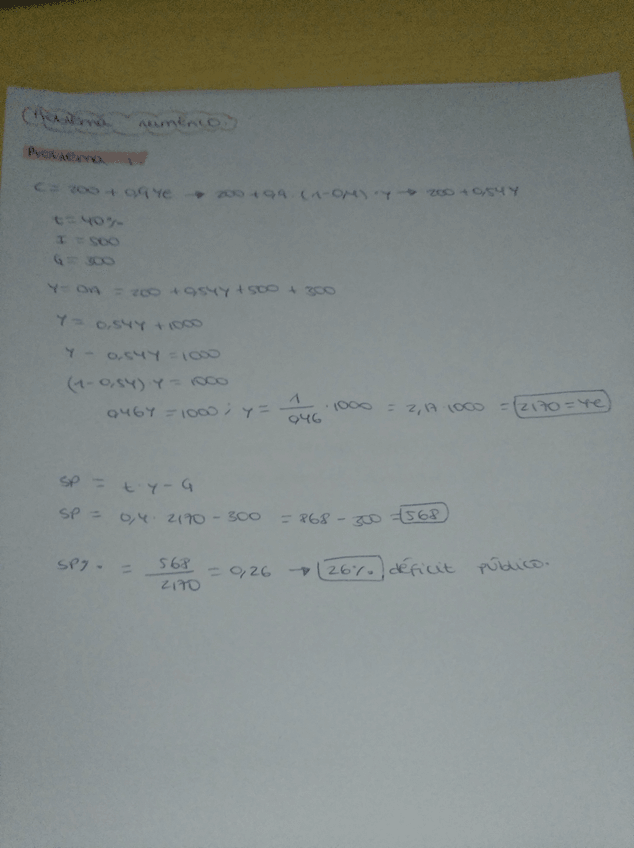 Problema numérico.
Problema 1
C = 200 + 0,9 Ye → 200 + 0,9 · (1-0,4) · Y → 200 + 0,54Y
t = 40%
I = 500
G = 300
Y = DA = 200 + 0,54Y + 500 + 300
Y = 0,54Y + 1000
Y - 0,54Y = 1000
(1 - 0,54) Y = 1000
0,46Y = 1000 ; Y = 1/0,46 · 1000 = 2,17 · 1000 = 2170 = Ye
SP = t · Y - G
SP = 0,4 · 2170 - 300 = 868 - 300 = 568
SP% = 568/2170 = 0,26 → 26% déficit público.